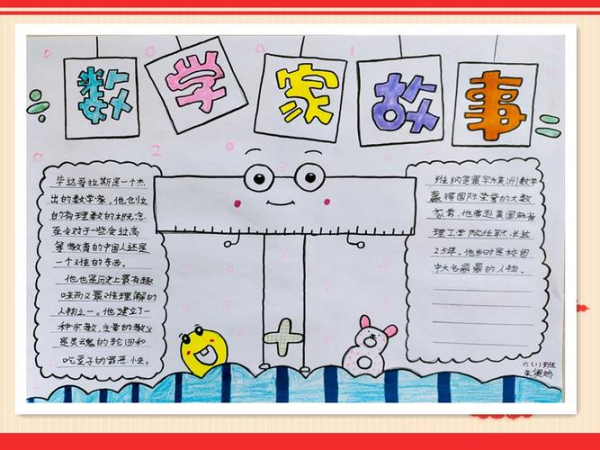 数学家故事
毕达哥拉斯是一个杰
出的数学家，他创立
的有理数的概念
至今对于一些受过高
等教育的中国人还是
一个对性的东西。
他也是历史上最有趣
味而又最难理解的
人物之一。他建立了一
种宗教，主要的教义
是灵魂的轮回和
吃豆子的罪恶性。
维纳是最早为美洲数学
赢得国际荣誉的大数
学家，他曾赴美国麻省
理工学院任职，长达
25年。他当时是校园
中大名鼎鼎的人物。